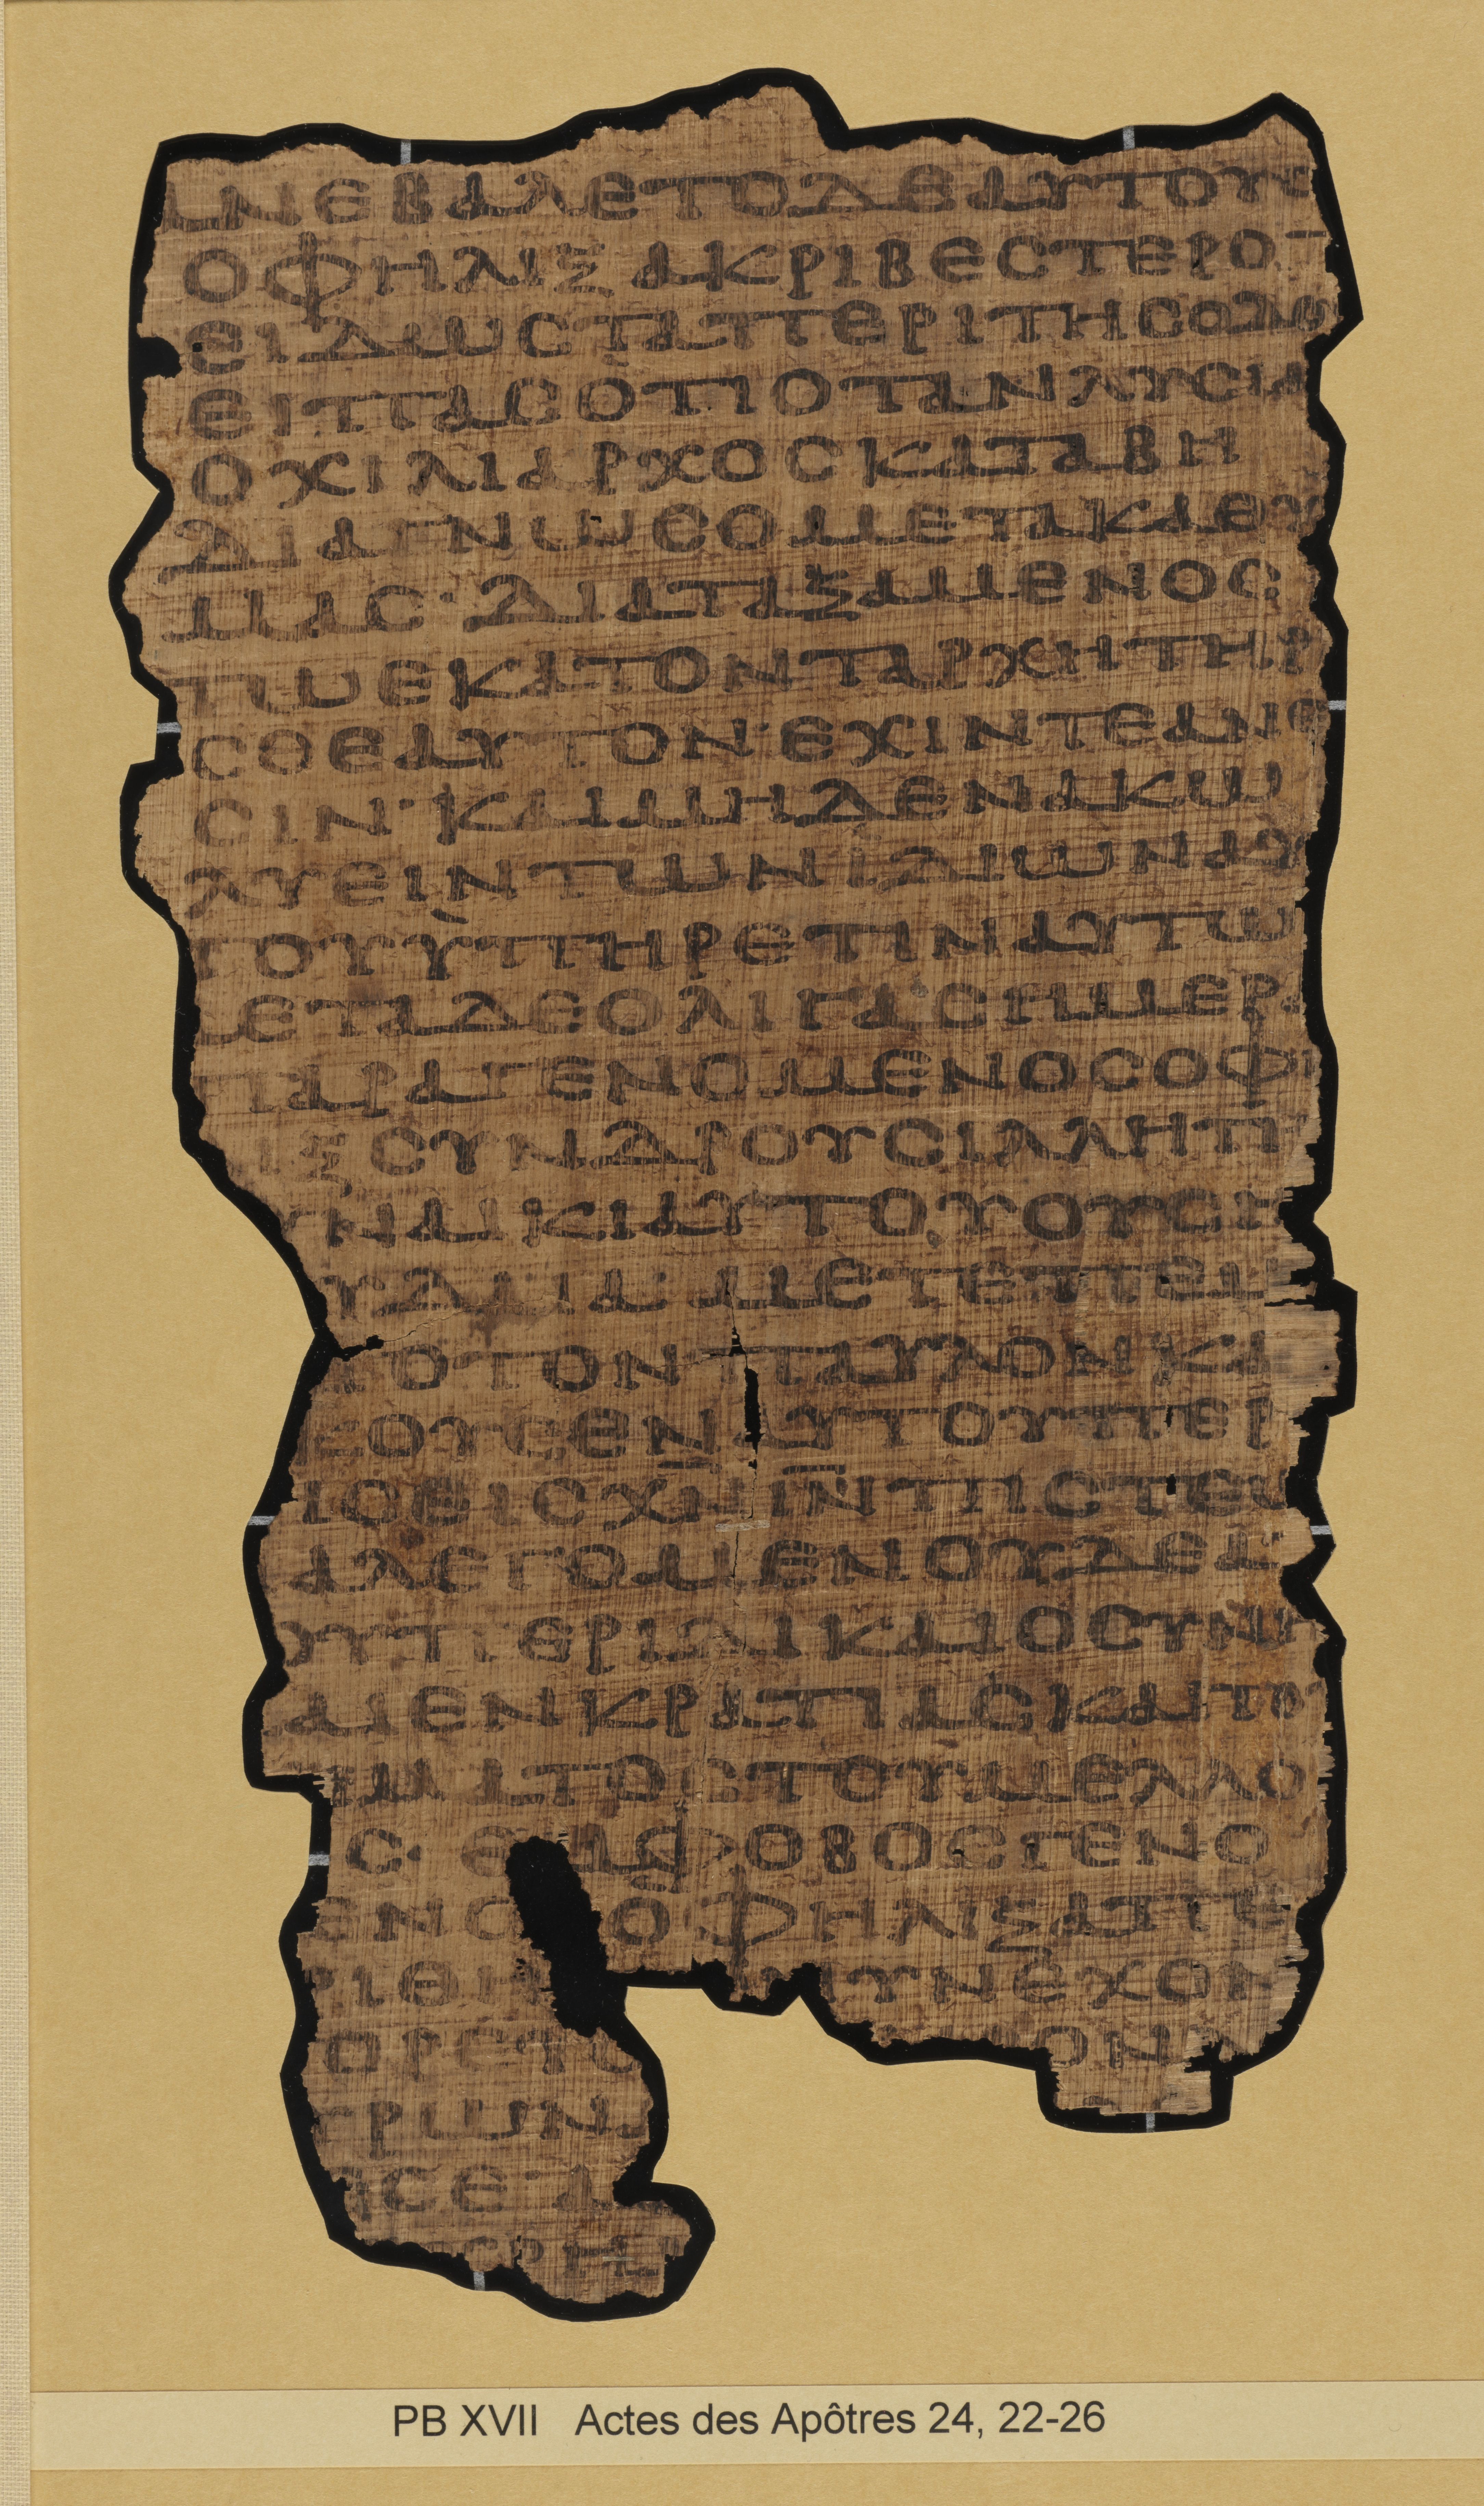 ΑΝΕΒΑΛΕΤΟΔΕΑΥΤΟΥΣ
ΟΦΗΛΙΞΑΚΡΙΒΕΣΤΕΡΟ¯
ΕΙΔΩΣΤΑΠΕΡΙΤΗΣΟΔΟΥ
ΕΙΠΑΣΟΤΙΟΤΑΝΛΥΣΙΑ
ΟΧΙΛΙΑΡΧΟΣΚΑΤΑΒΗ
ΔΙΑΓΝΩΣΟΜΕΤΑΚΑΘΥ
ΜΑΣ· ΔΙΑΤΑΞΑΜΕΝΟΣ
ΤΩΕΚΑΤΟΝΤΑΡΧΗΤΗΡ
ΣΘΕΑΥΤΟΝ·ΕΧΙΝΤΕΑΝΕ
ΣΙΝ·ΚΑΙΜΗΔΕΝΑΚΩ
ΛΥΕΙΝΤΩΝΙΔΙΩΝΑΥ
ΤΟΥΫΠΗΡΕΤΙΝΑΥΤΩ
ΜΕΤΑΔΕΟΛΙΓΑΣΗΜΕΡΑ
ΠΑΡΑΓΕΝΟΜΕΝΟΣΟΦΗ
ΙΞΣΥΝΔΡΟΥΣΙΛΛΗΤΗ
ΥΝΑΙΚΙΑΥΤΟΥΟΥΣΗ
ΥΔΑΙΑ· ΜΕΤΕΠΕΜ
ΤΟΤΟΝΠΑΥΛΟΝΚΑ
ΚΟΥΣΕΝΑΥΤΟΥΠΕΡ
ΤΗΣΕΙΣΧ̅Ν̅Ι̅Ν̅ΠΙΣΤΕΩ
ΑΛΕΓΟΜΕΝΟΥΔΕΑ
ΟΥΠΕΡΙΔΙΚΑΙΟΣΥΝΗ
ΑΙΕΝΚΡΑΤΙΑΣΚΑΙΤΟΥ
ΙΜΑΤΟΣΤΟΥΜΕΛΛΟ
Σ· ΕΜΦΟΒΟΣΓΕΝΟ
ΕΝΟΣΟΦΗΛΙΞΑΠΕ
ΡΙΘΗ ΝΥΝΕΧΟΝ
ΟΡΕΥΟ ΟΝ
ΙΡΩΝ
ΕΣΕ Α
ΧΡΗ
PB XVII Actes des Apôtres 24, 22-26